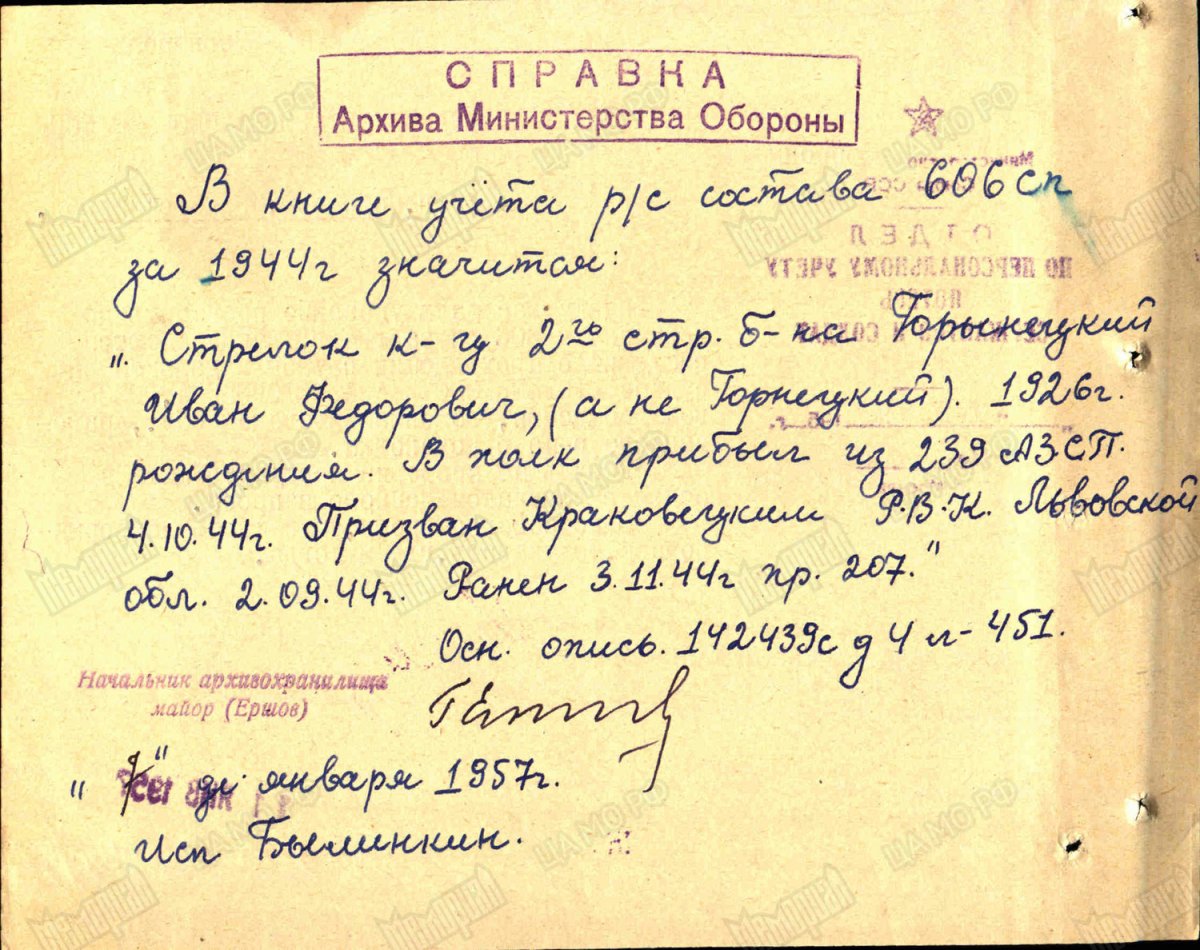 СПРАВКА
Архива Министерства Обороны
В книге учёта р/с состава 606 сп
за 1944г значится:
„ Стрелок к-ту 2го стр. б-на Горынецкий
Иван Федорович, (а не Горнецкий). 1926г.
рождения. В полк прибыл из 239 АЗСП.
4.10.44г. Призван Краковецким Р.В.К. Львовской
обл. 2.09.44г. Ранен 3.11.44г пр. 207."
Осн. опись. 142439с д 4 л-451.
Начальник архивохранилища
майор (Ершов)
" 7 " января 1957г.
исп Былинкин.
ОТДЕЛ
ПО ПЕРСОНАЛЬНОМУ УЧЕТУ
Мемориал
ЦАМО РФ